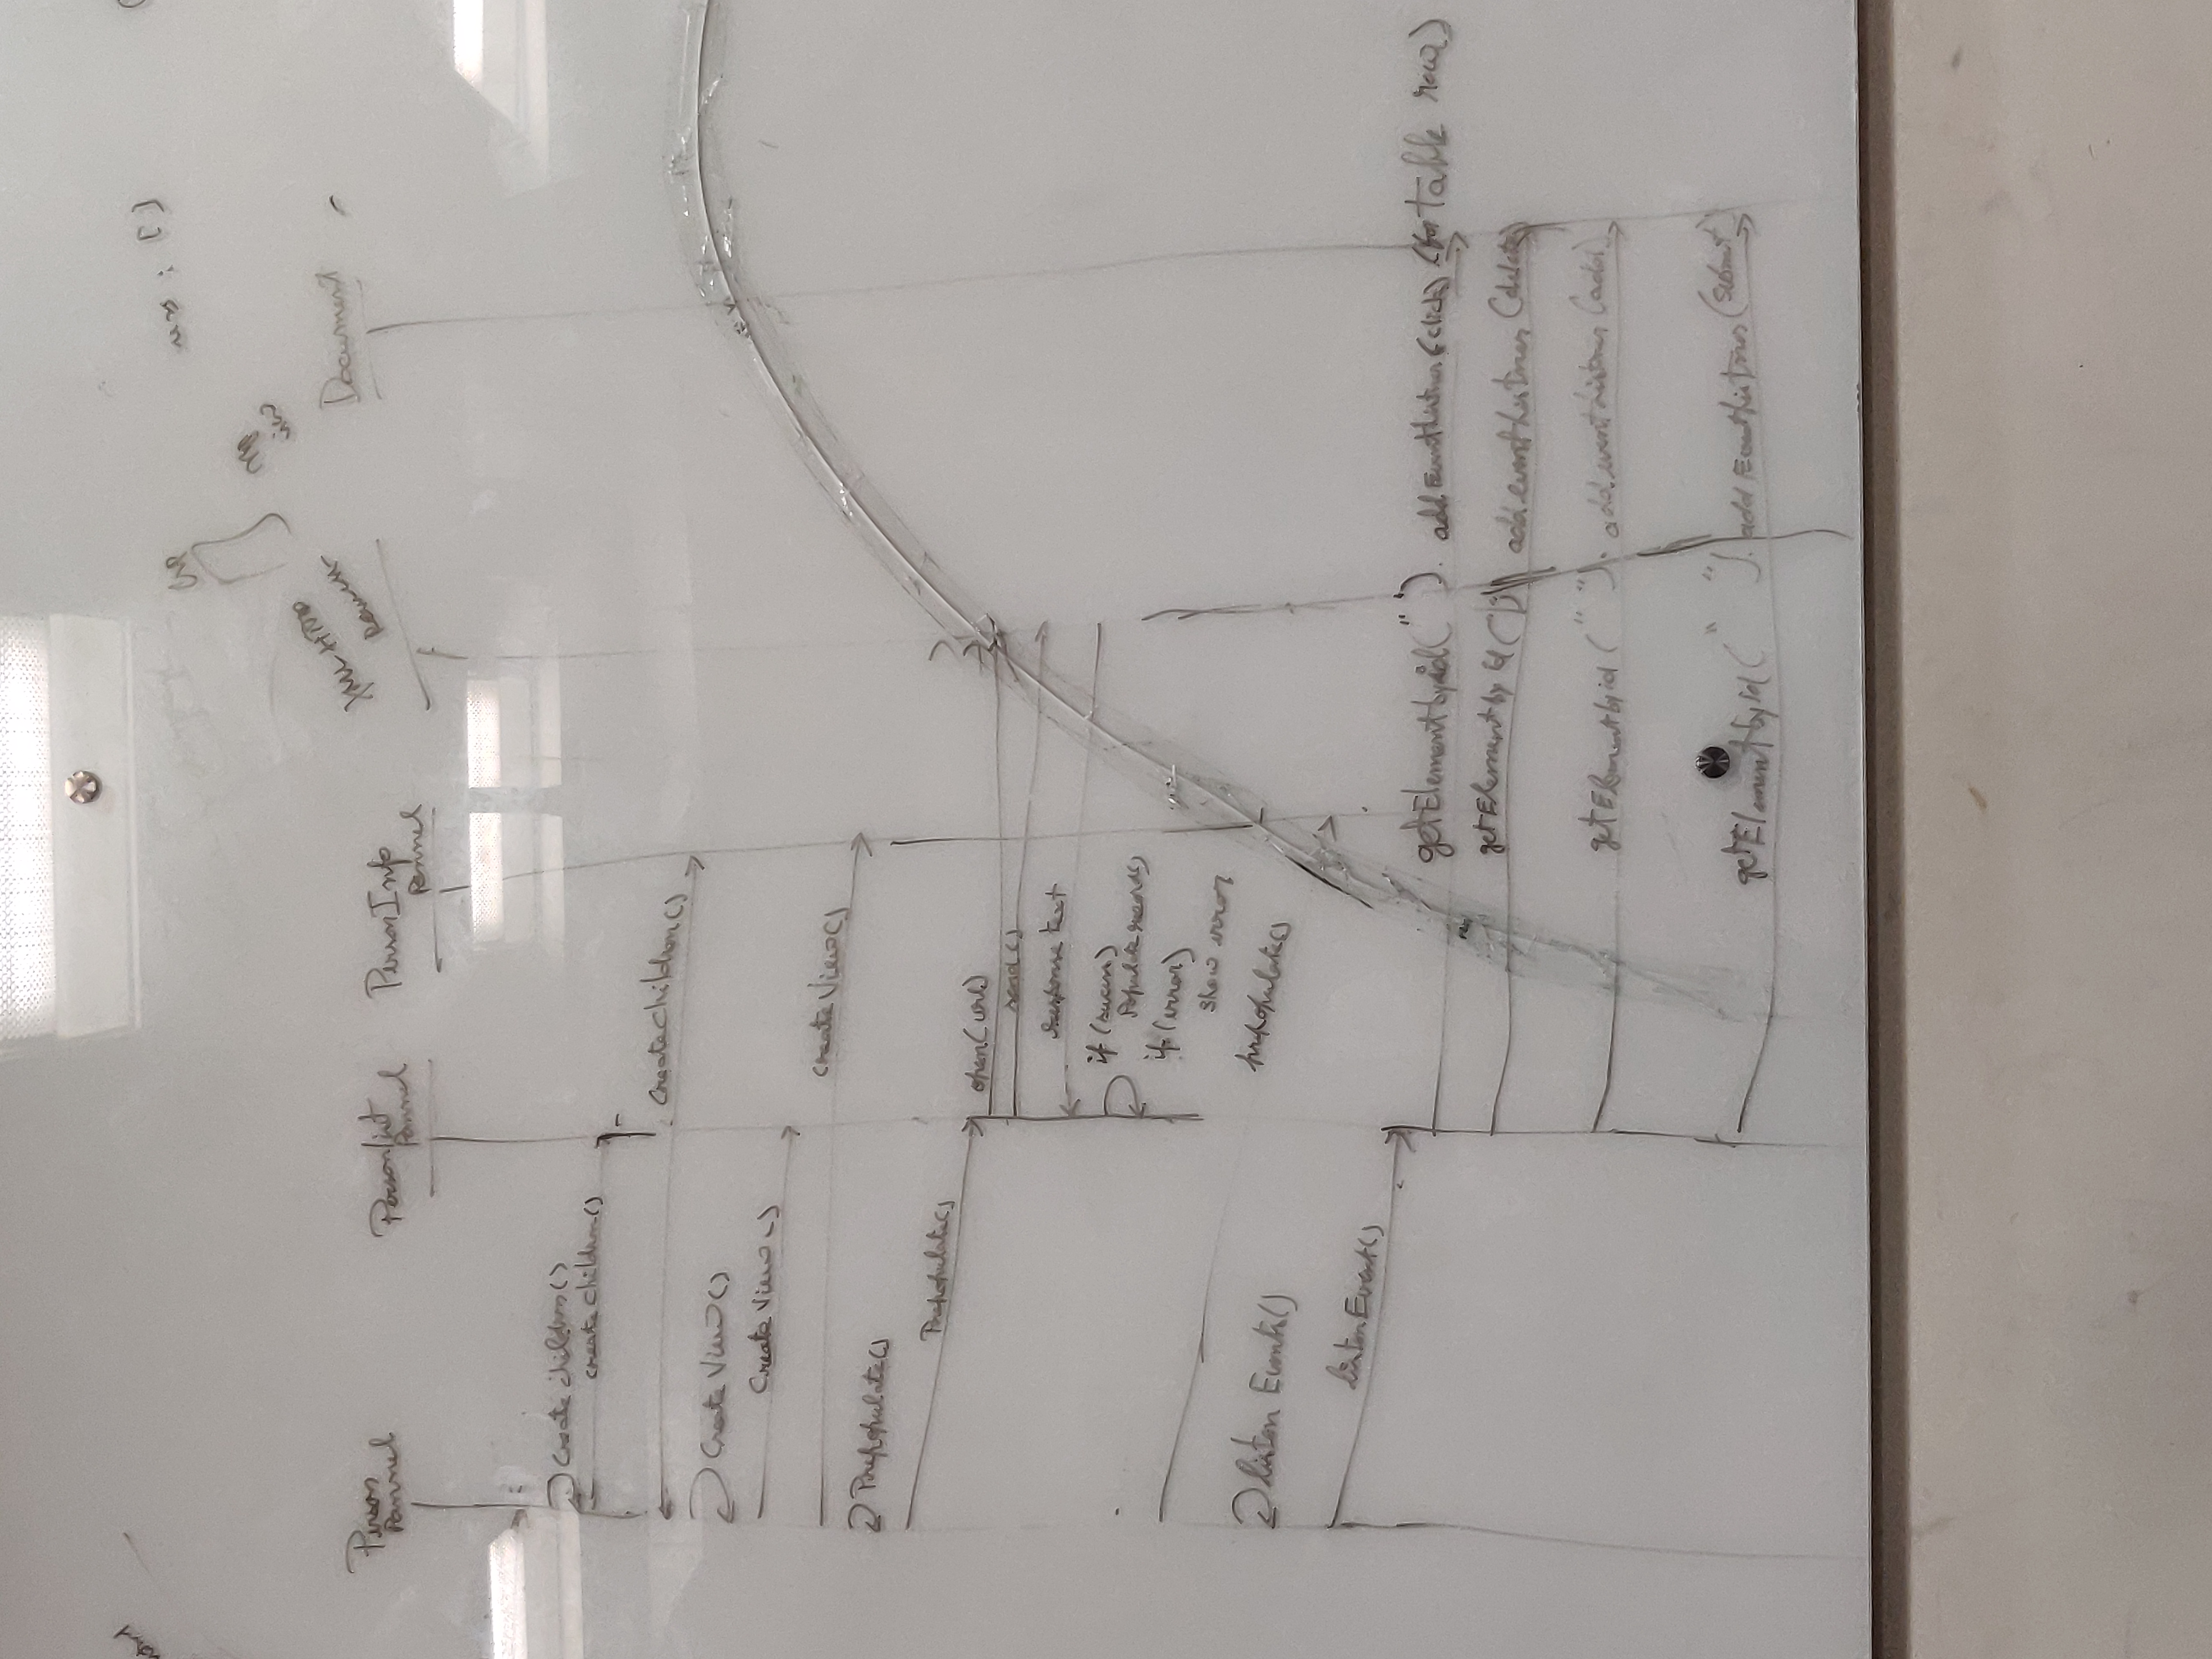 : [ ]
Person
Pannel
Person List
Pannel
PersonInfo
Pannel
Document
Create children()
create children()
Create Children()
Create View()
Create View()
create View()
Prepopulate()
Prepopulate()
open(url)
send()
response text
if (success)
Populate record()
if (error)
show error
prepopulate()
listen Events()
listen Event()
getElementbyid(" "). add EventListner (click) (for table row)
getElementby Id (" ") add.eventListner (delete)
getElementbyid (" "). add.eventListner (add)
getElementbyid (" "). add EventListner (submit)